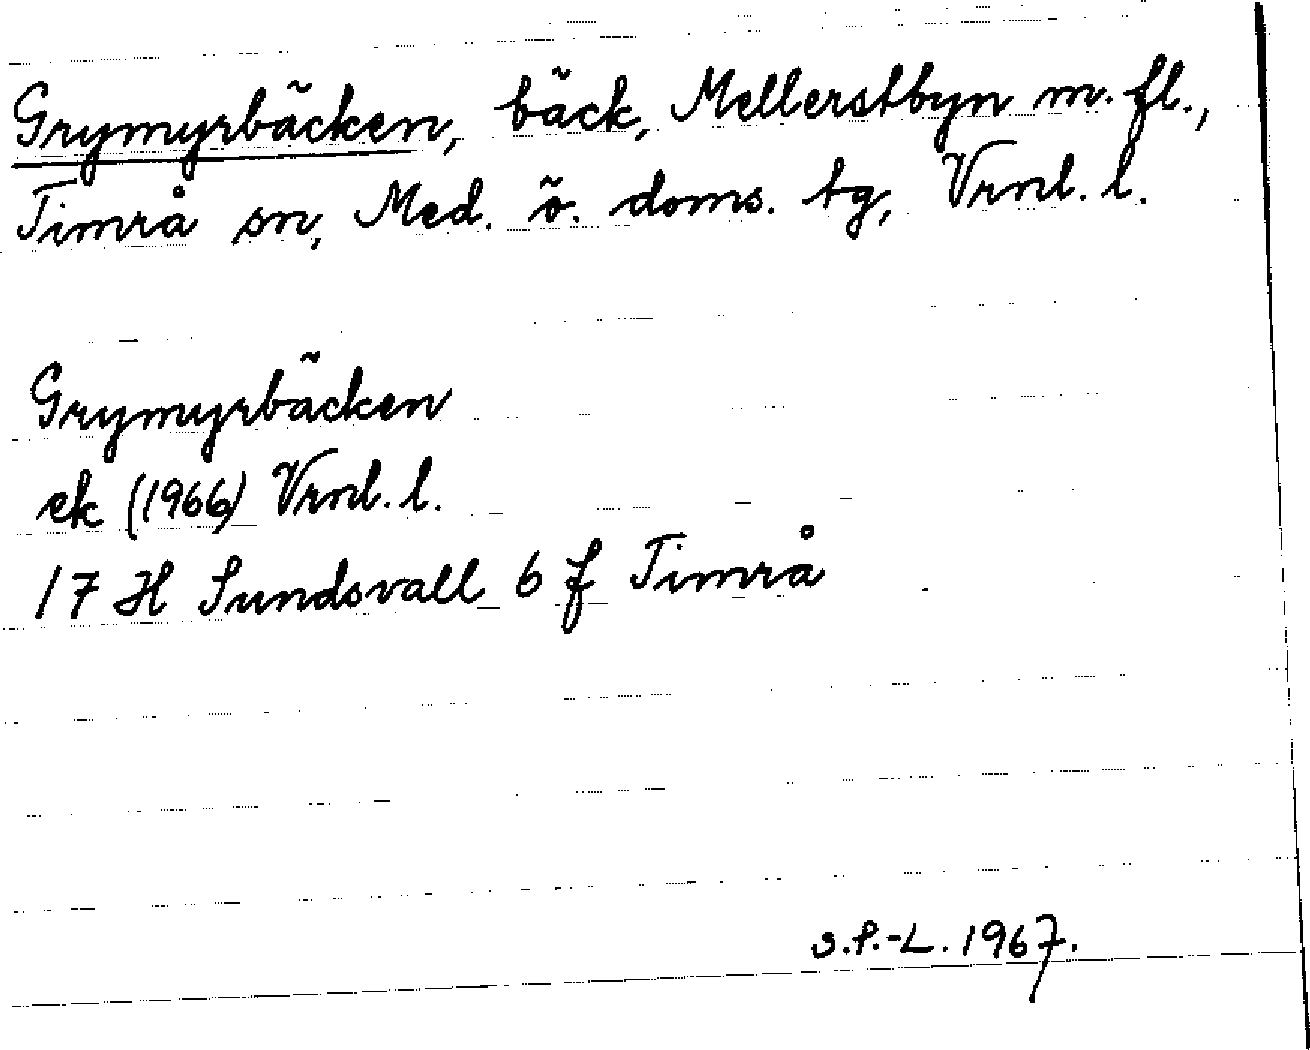 Grymyrbäcken, bäck, Mellerstbyn m. fl.,
Timrå sn, Med. ö. doms. tg, Vrnl. l.
Grymyrbäcken
ek (1966) Vrnl. l.
17 H Sundsvall 6 f Timrå
S.P.-L. 1967.